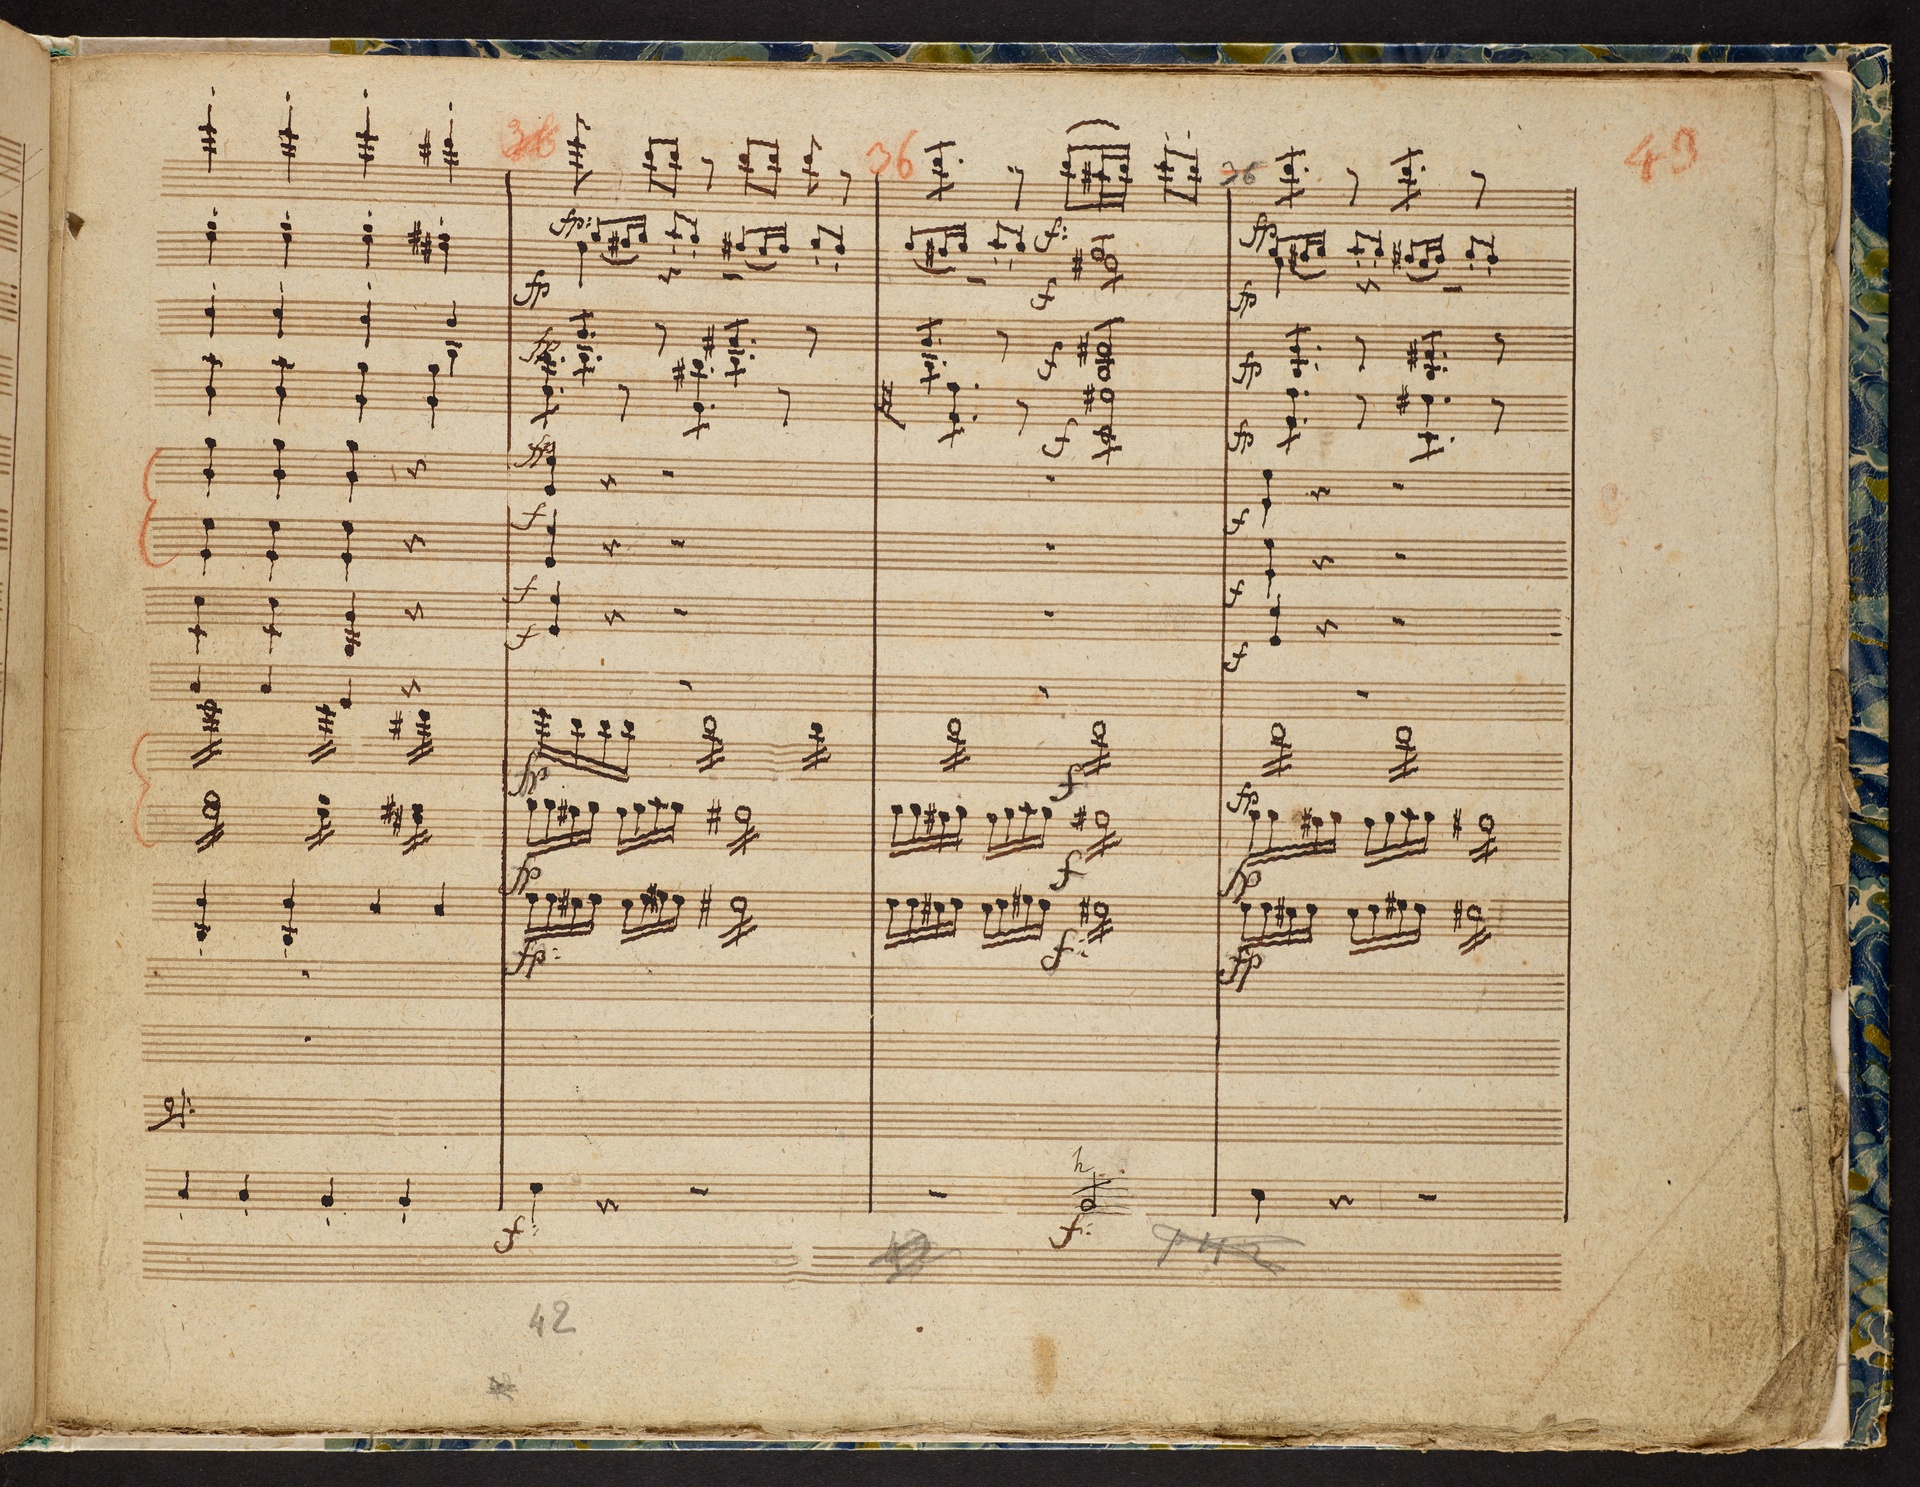 36 36 36 43
fp: f: fp
fp f fp
fp f fp
f fp
fp
f f
f f
f f
fp f
fp
fp f fp
fp: f: fp
h
f: f:
42